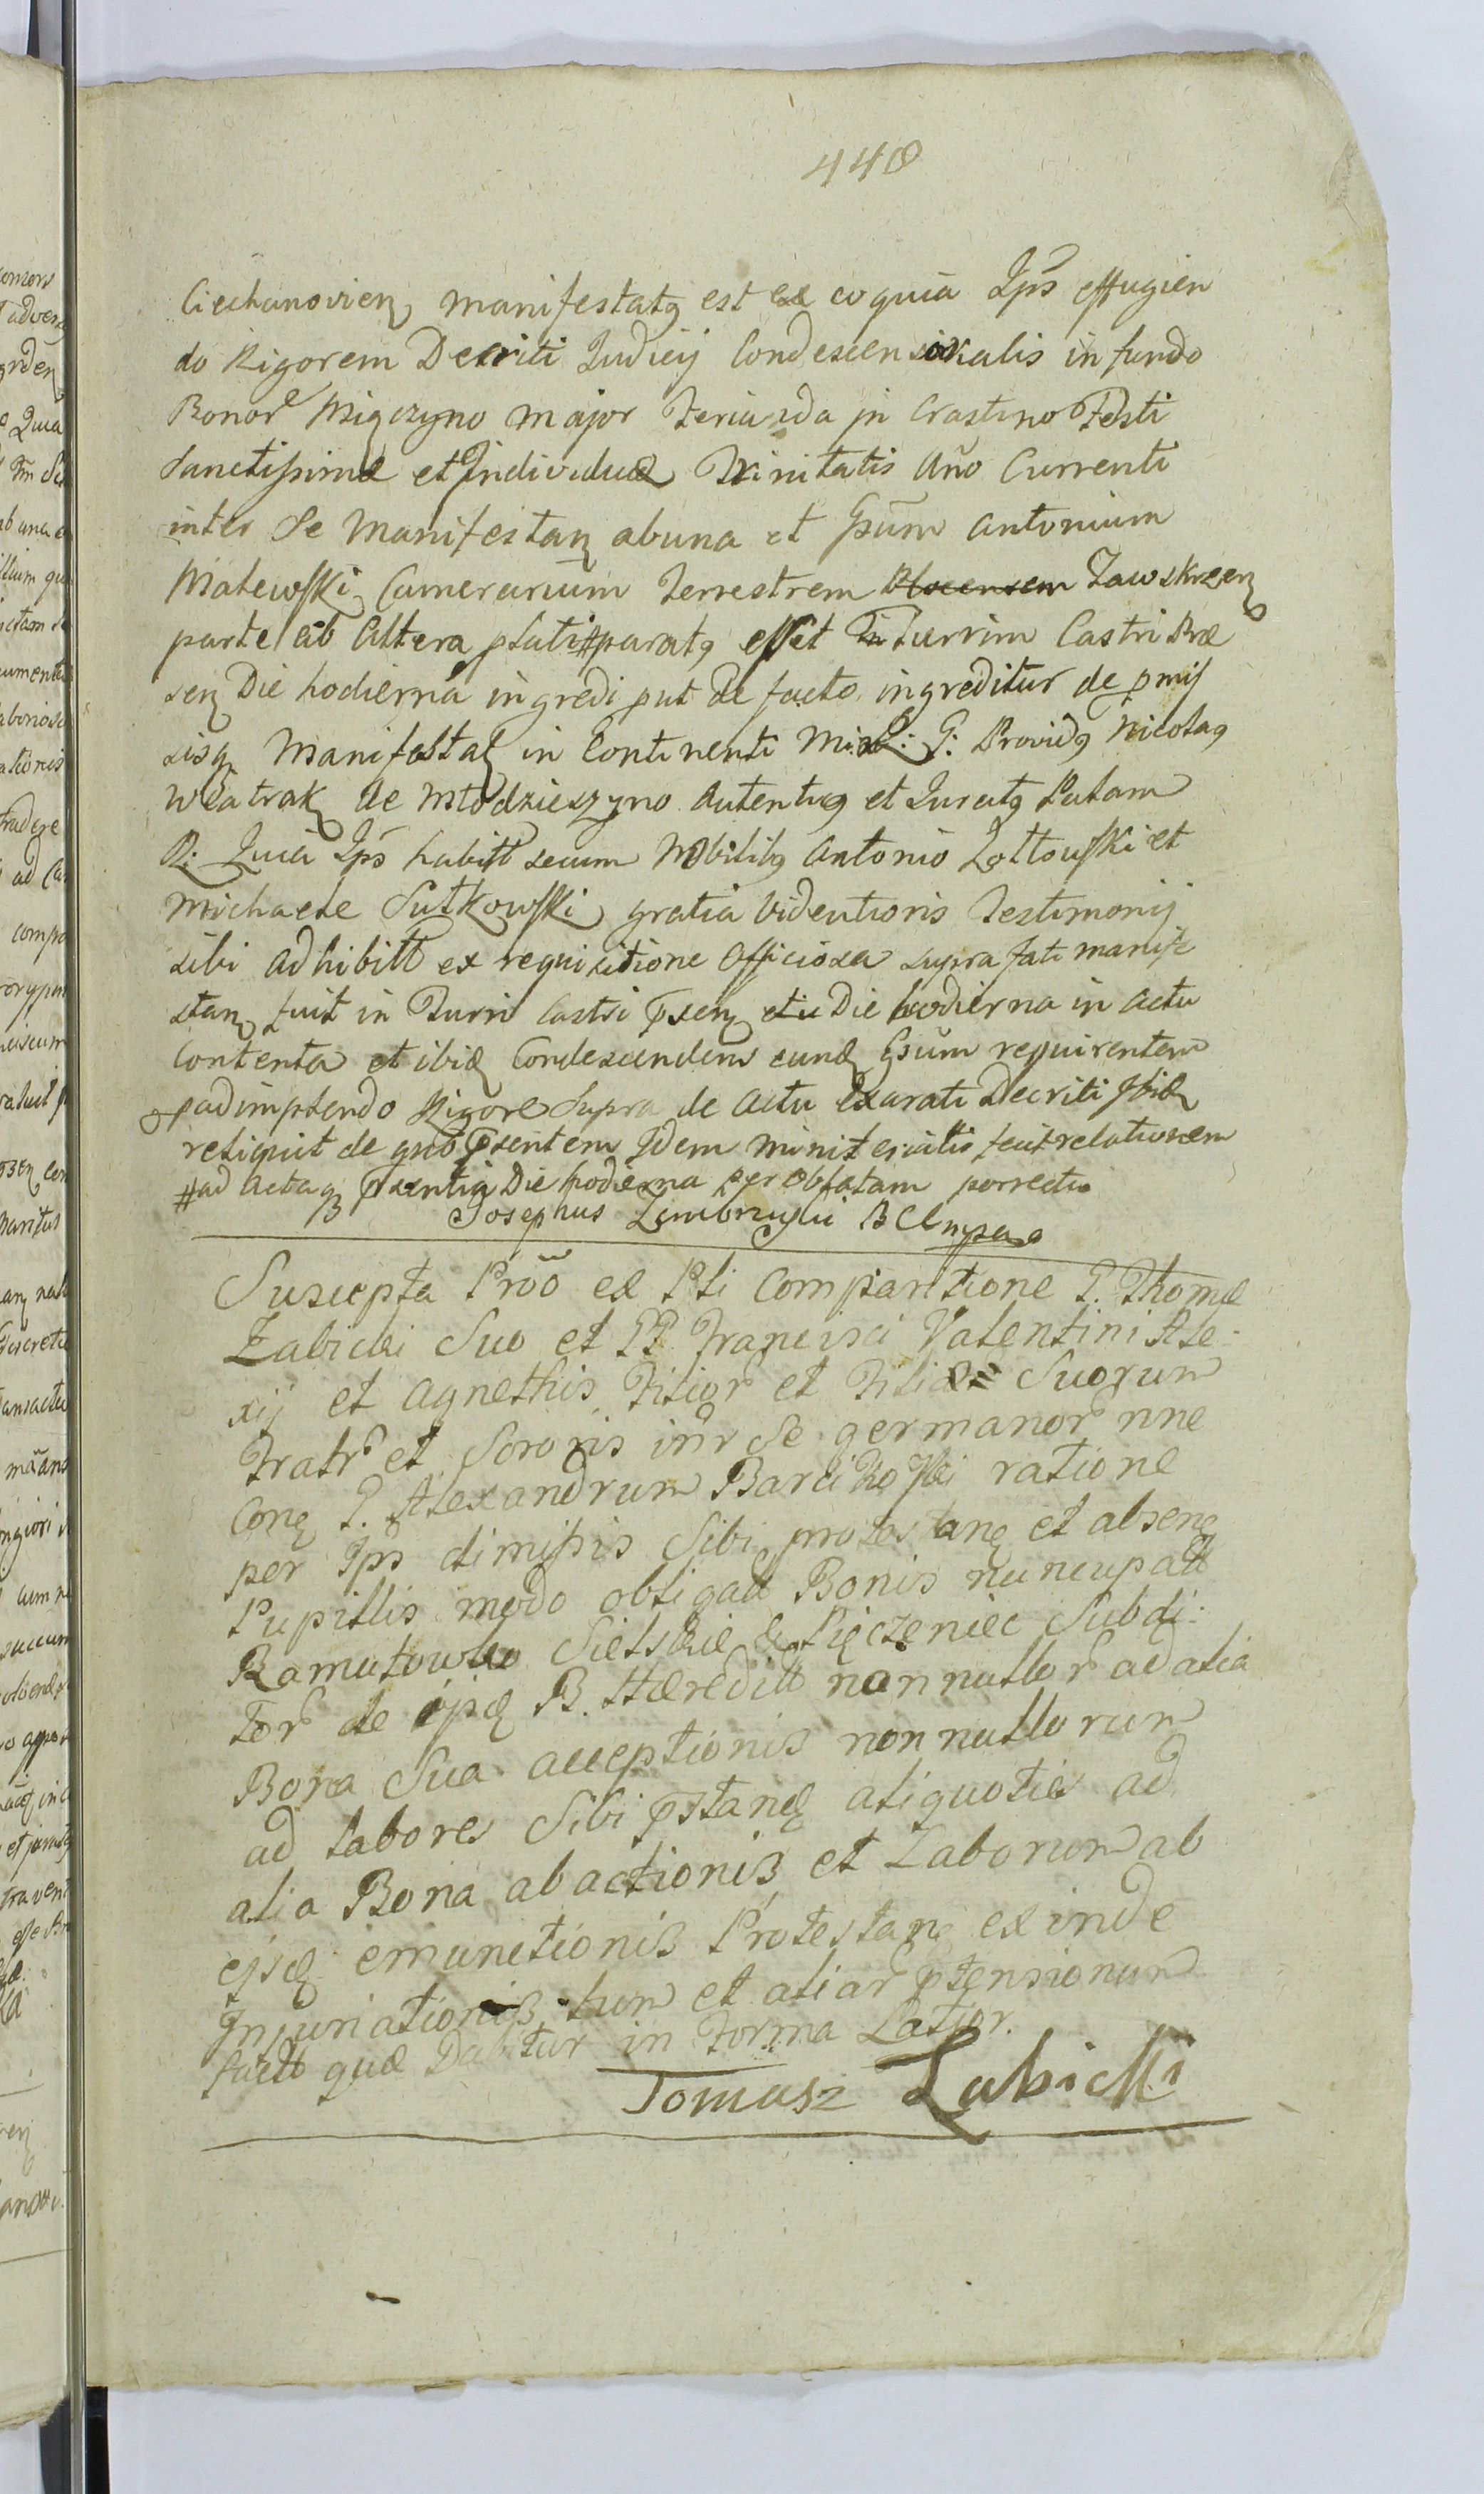 448
Ciechanovien manifestatq est ex eo quia Ips effugien
do Rigorem Decriti Judicij Condescensionalis in fundo
Bonor Miączyno major Feria 2da in Crastino Festi
Sanctissimæ et Individuæ Trinitatis Año Currenti
inter Se Manifestan ab una et Gsum Antonium
Makewski Camerarium Terrestrem Plocensem Zawskrzen
parte ab Altera lati paratq esset In Turrim Castri Præ
sen Die hodierna ingredi put de facto ingreditur de pmis
sisq Manifestat in Continenti Mixt: G: Providq Nicolaq
Wiatrak de Młodzieszyno Autentiq et Juratq Palam
R: Quia Ips habitt secum Nobilibq Antonio Zołtowski et
Michaele Sutkowski gratia videntioris Testimonij
sibi adhibitt ex requisitione Officiosa supra fati manife
stan fuit in Turri Castri psen Die hodierna in actu
Contenta et ibid Condescendens eund Gsum requirentem
adimplendo Rigore Supra de actu Exarati Decriti Ibid
reliquit de quo psentem Idem ministerialis fecit relationem
# ad Acta q psentia Die hodierna per Oblatam porrectu
Josephus Zembrzuski B C mpa
Suscepta Prõo ex Pli Comparitione G. Thomæ
Łabicki Suo et GG. Francisci Valentini Ale-
xij et Agnethis Filior et Filiæ Suorum
Fratr et Sororis intr Se germanor nne
Con G. Alexandrum Barcikoski ratione
per Ips dimissis Sibi protestan et absen
Pupillis modo obligatt Bonis nuncupatt
Ramutowko Sielskie & Pięczeniec Subdi:
tor de ipsq B. Hæreditt nonnullor ad alia
Bona Sua acceptionis nonnullorum
ad labores Sibi pstand aliquoties ad
alia Bona abactionis et Laborum ab
ejsd emunctionis Protestan exinde
Injuriationis tum et aliar ptensionum
factt quæ Dabitur in Forma Latior.
Tomasz Łabicki